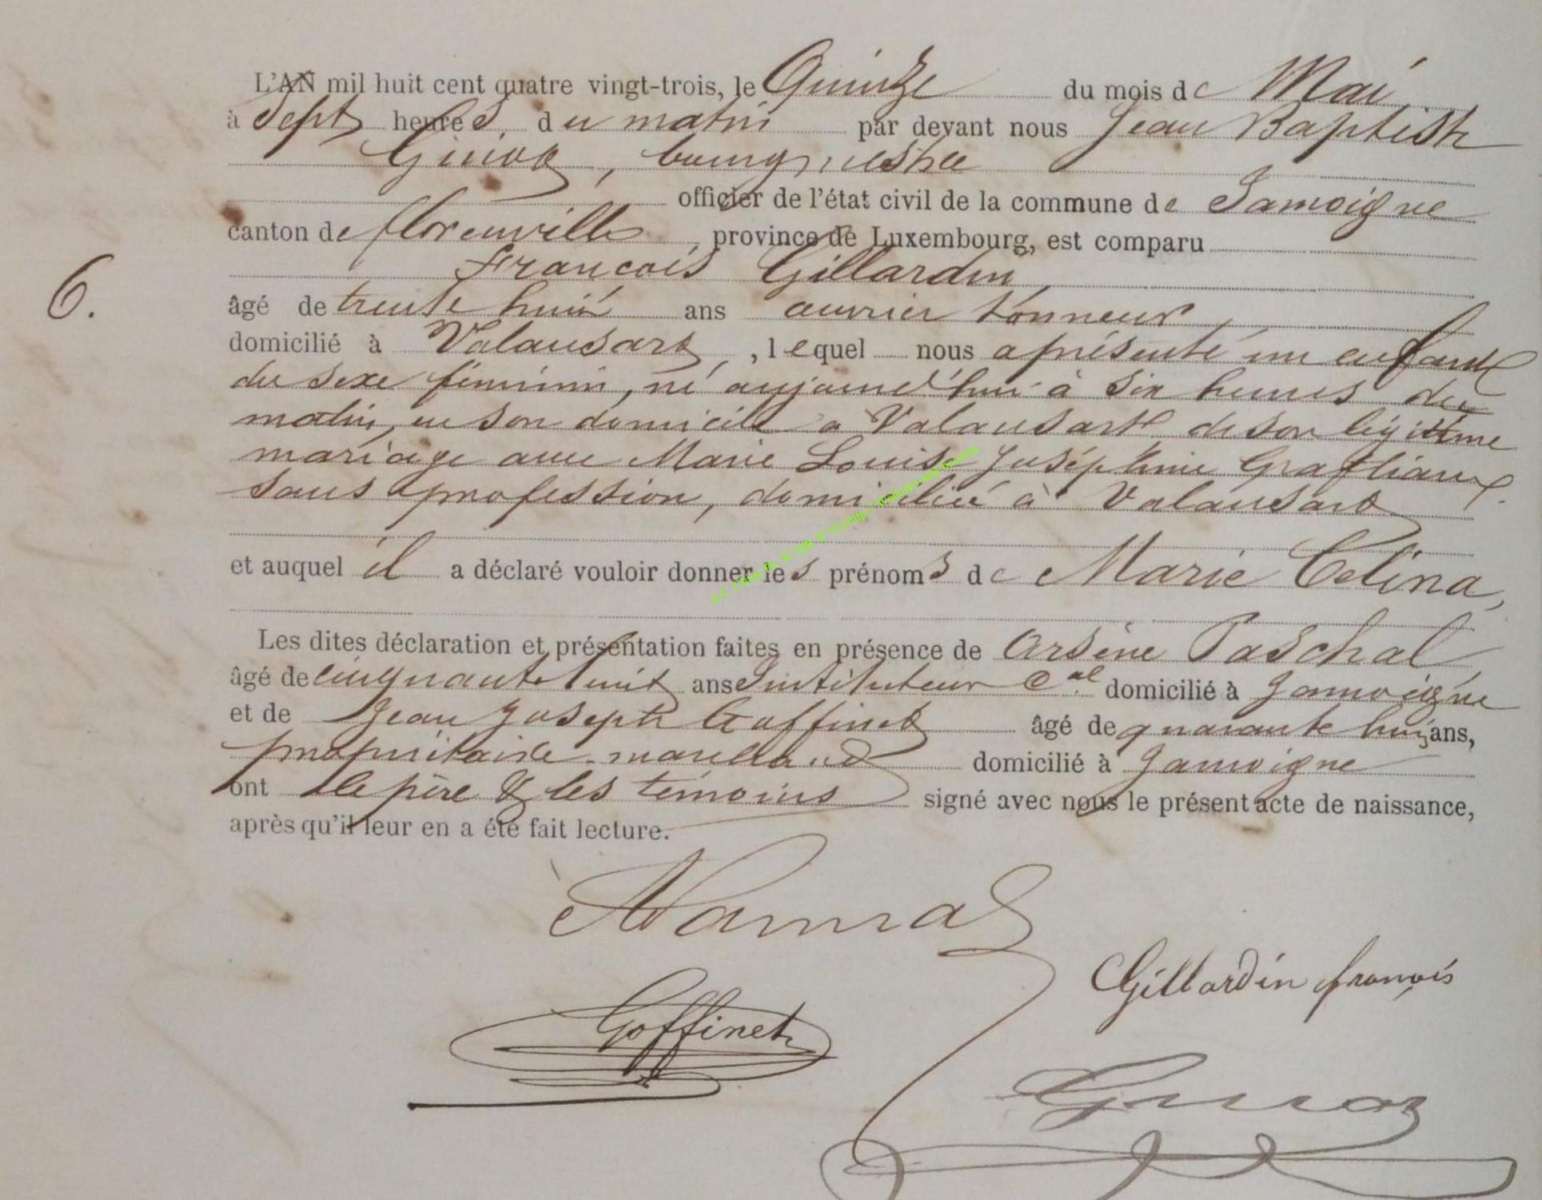 L'AN mil huit cent quatre vingt-trois, le Quinze du mois de Mai,
à Sept heures, du matin par devant nous Jean Baptiste
, bourgmestre
officier de l'état civil de la commune de Jamoigne
canton de florenville, province de Luxembourg, est comparu
François Gillardin,
6.
âgé de trente huit ans ouvrier tonneur,
domicilié à Valansart, lequel nous a présenté un enfant
du sexe féminin, né aujourd'hui à Six heures du
matin, en son domicile a Valansart, de son légitime
mariage avec Marie Louise Joséphine
sans profession, domiciliée à Valansart
et auquel il a déclaré vouloir donner les prénoms de Marie Celina,
Les dites déclaration et présentation faites en présence de Arsène Paschal
âgé de cinquante huit ans Instituteur Cal domicilié à Jamoigne
et de Jean Joseph Goffinet âgé de quarante huit ans,
propriétaire marchand domicilié à Jamoigne
ont le père & les témoins signé avec nous le présent acte de naissance,
après qu'il leur en a été fait lecture.
Gillardin françois
Goffinet